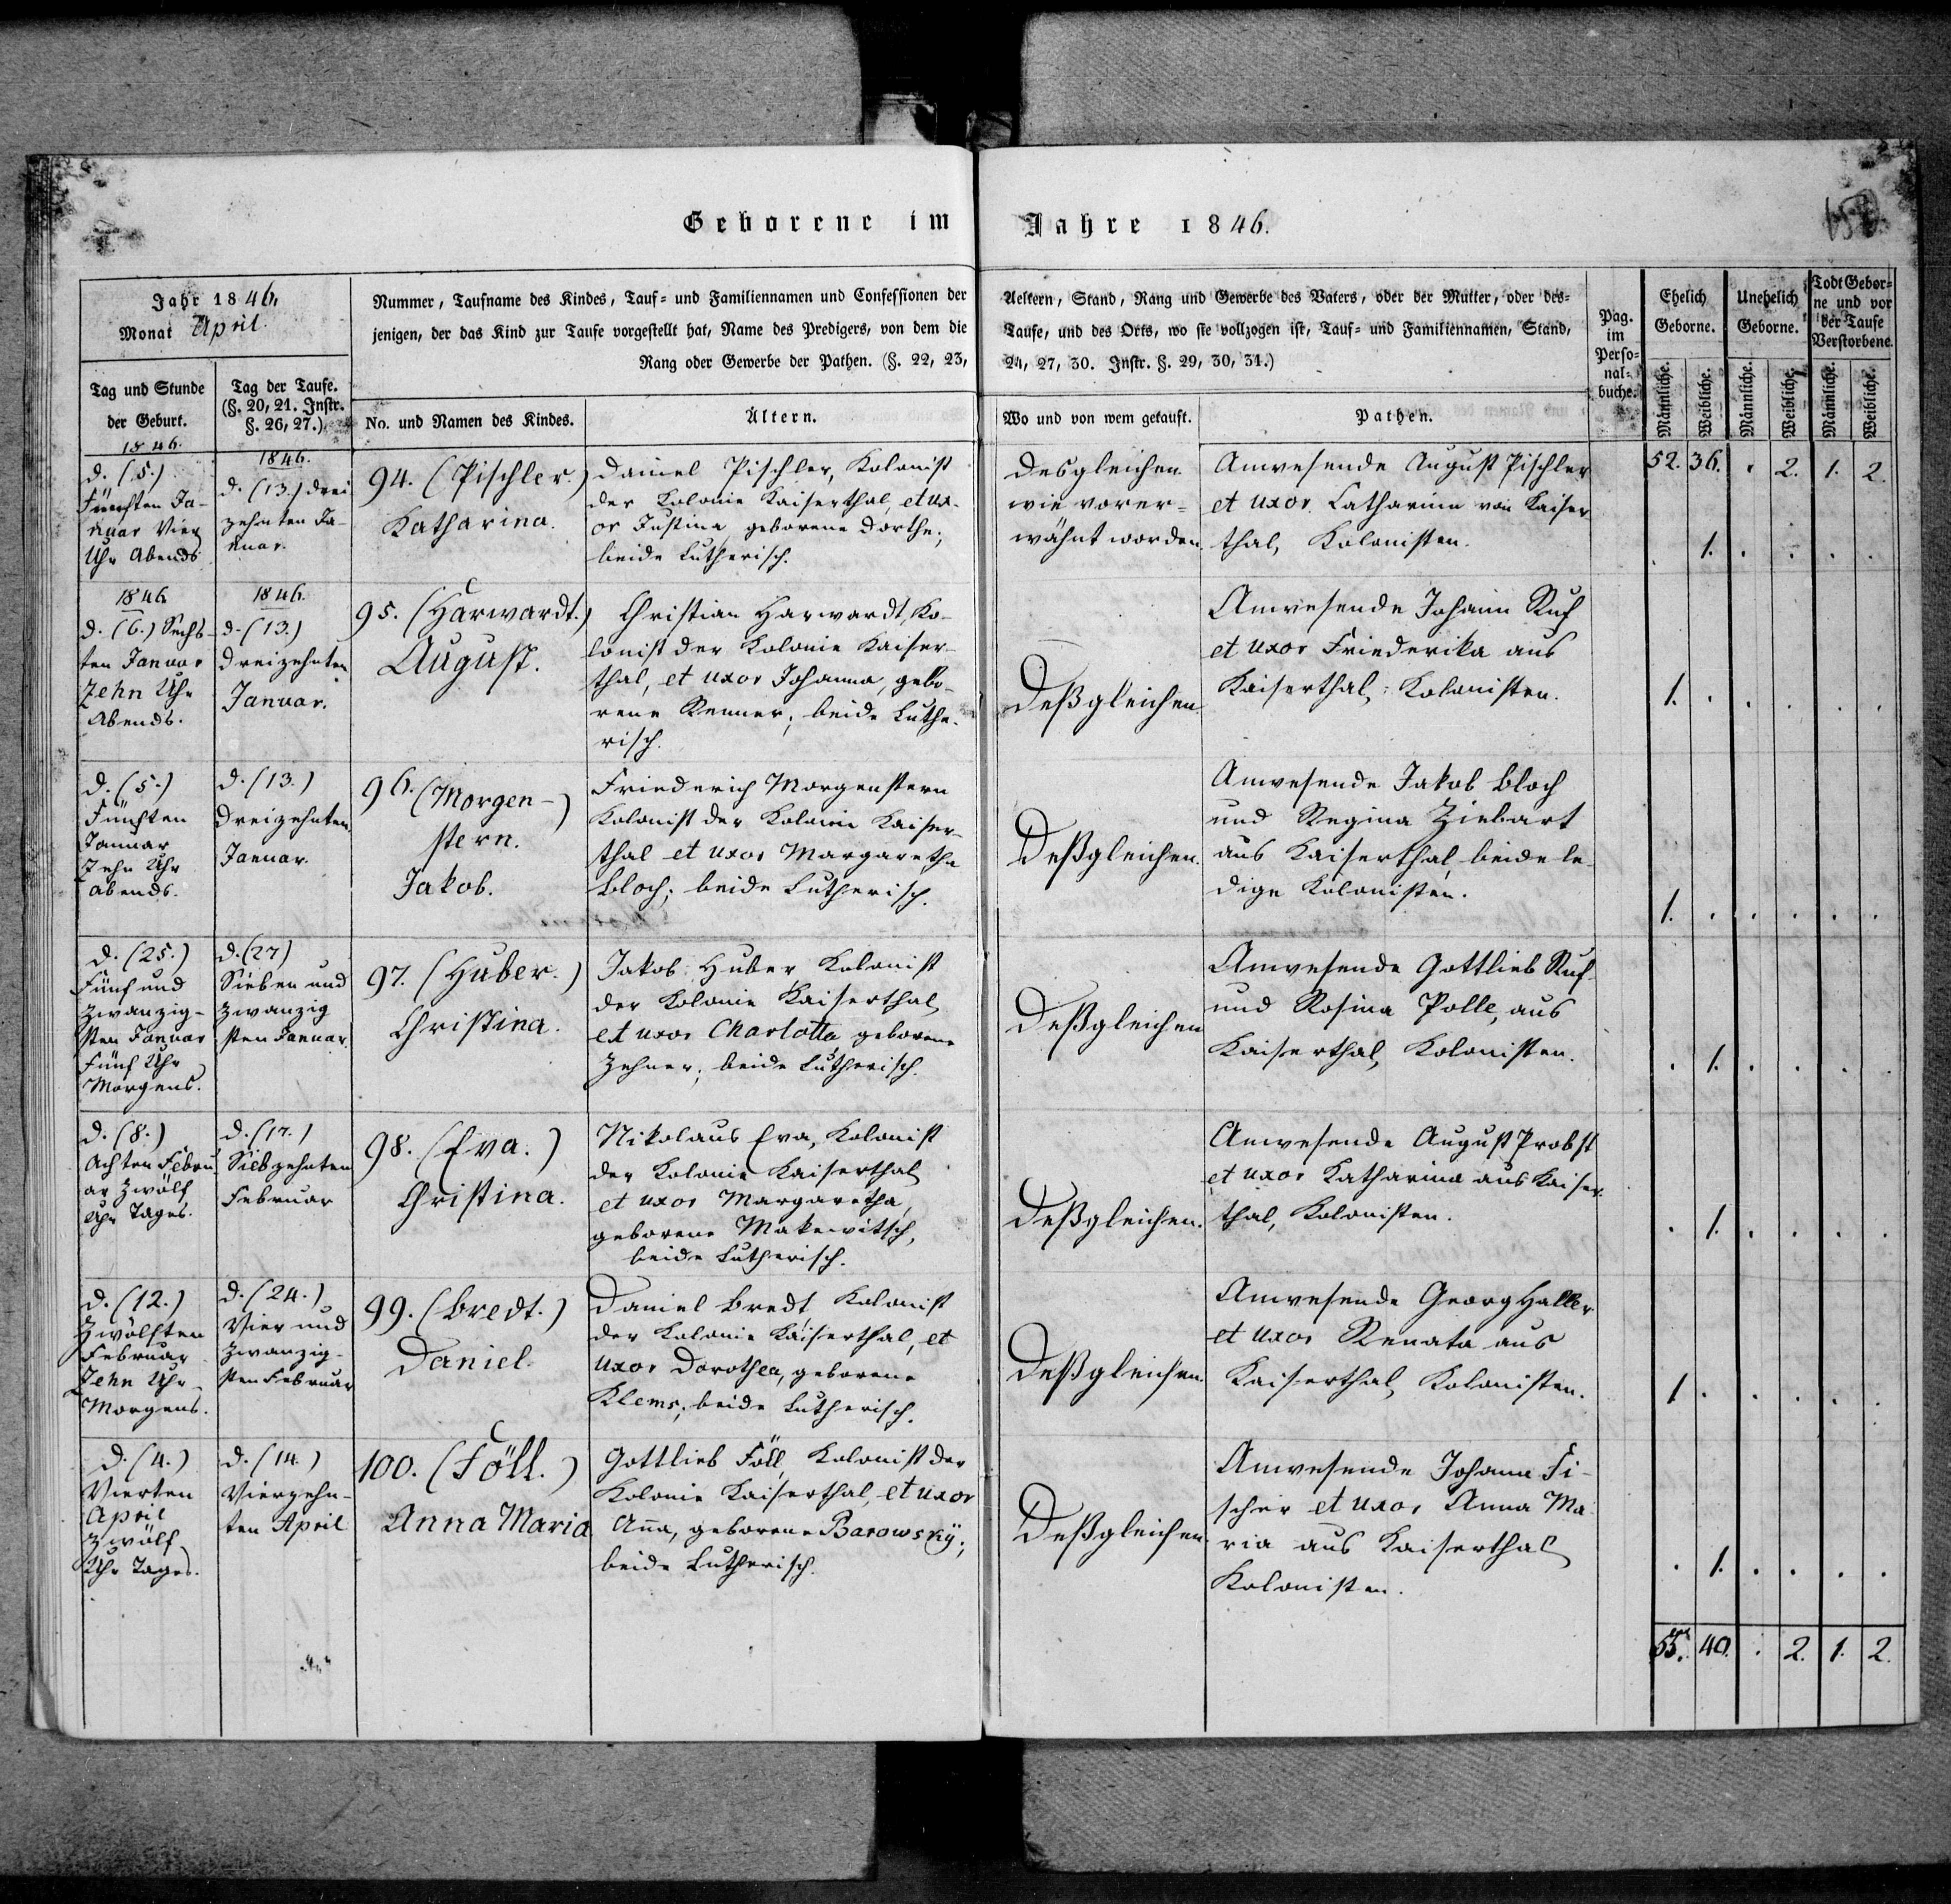 Geborene im Jahre 1846.
Jahr 1846.
Monat April.
Nummer, Taufname des Kindes, Tauf- und Familiennamen und Confessionen der Aeltern, Stand, Rang und Gewerbe des Vaters, oder der Mutter, oder des-
jenigen, der das Kind zur Taufe vorgestellt hat, Name des Predigers, von dem die Taufe, und des Orts, wo sie vollzogen ist, Tauf- und Familiennamen, Stand,
Rang oder Gewerbe der Pathen. (§. 22, 23, 24, 27, 30. Instr. §. 29, 30, 31.)
Pag.
im
Perso-
nal-
buche.
Ehelich
Geborne.
Unehelich
Geborne.
Todt Gebor-
ne und vor
der Taufe
Verstorbene.
Tag und Stunde
der Geburt.
Tag der Taufe.
(§. 20, 21. Instr.
§. 26, 27.)
No. und Namen des Kindes.
Ältern.
Wo und von wem getauft.
Pathen.
Männliche.
Weibliche.
Männliche.
Weibliche.
Männliche.
Weibliche.
52. 36. . 2. 1. 2.
1846.
d. (5.)
Fünften Ja-
nuar Vier
Uhr Abends
1846.
d. (13.) drei
zehnten Ja-
nuar.
94. (Pischler.)
Katharina.
Daniel Pischler, Kolonist
der Kolonie Kaiserthal, et ux-
or Justina, geborene Dorthe;
beide Lutherisch.
Desgleichen
wie vorer-
wähnt worden.
Anwesende August Pischler
et uxor Catharina von Kaiser
thal, Kolonisten.
. 1. . . . .
1846
d. (6.) Sechs-
ten Januar
Zehn Uhr
Abends.
1846.
d. (13.)
Dreizehnten
Januar.
95. (Harwardt.)
August.
Christian Harwardt, Ko-
lonist der Kolonie Kaiser-
thal, et uxor Johanna, gebo-
rene Renner; beide Luthe-
risch.
Deßgleichen.
Anwesende Johann Ruf
et uxor Friederika aus
Kaiserthal, Kolonisten.
1. . . . . .
d. (5.)
Fünften
Januar
Zehn Uhr
abends.
d. (13.)
Dreizehnten
Januar.
96. (Morgen-)
stern.
Jakob.
Friederich Morgenstern
Kolonist der Kolonie Kaiser-
thal et uxor Margaretha
Bloch; beide Lutherisch.
Deßgleichen.
Anwesende Jakob Bloch
und Regina Ziebart
aus Kaiserthal, beide le-
dige Kolonisten.
1. . . . . .
d. (25.)
Fünf und
zwanzig-
sten Januar
Fünf Uhr
Morgens.
d. (27)
Sieben und
zwanzig
sten Januar.
97. (Huber.)
Christina.
Jakob Huber Kolonist
der Kolonie Kaiserthal
et uxor Charlotta geborene
Zehner; beide Lutherisch.
Deßgleichen
Anwesende Gottlieb Ruf
und Rosina Polle, aus
Kaiserthal, Kolonisten.
. 1. . . . .
d. (8.)
Achten Febru
ar Zwölf
Uhr Tages.
d. (17.)
Siebzehnten
Februar
98. (Eva.)
Christina.
Nikolaus Eva, Kolonist
der Kolonie Kaiserthal
et uxor Margaretha,
geborene Makewitsch,
beide Lutherisch.
Deßgleichen.
Anwesende August Probst
et uxor Katharina aus Kaiser-
thal, Kolonisten.
. 1. . . . .
d. (12.)
Zwölften
Februar
Zehn Uhr
Morgens.
d. (24.)
Vier und
zwanzig-
sten Februar
99. (Bredt.)
Daniel.
Daniel Bredt, Kolonist
der Kolonie Kaiserthal, et
uxor Dorothea, geborene
Klems; beide Lutherisch.
Deßgleichen.
Anwesende Georg Haller
et uxor Renata aus
Kaiserthal, Kolonisten.
1 . . . . .
d. (4.)
Vierten
April
Zwölf
Uhr Tages.
d. (14.)
Vierzehn-
ten April
100. (Föll.)
Anna Maria
Gottlieb Föll, Kolonist der
Kolonie Kaiserthal, et uxor
Anna, geborene Barowsky;
beide Lutherisch.
Deßgleichen.
Anwesende Johann Fi-
scher et uxor Anna Ma-
ria aus Kaiserthal
Kolonisten.
. 1. . . . .
55. 40. . 2. 1. 2.